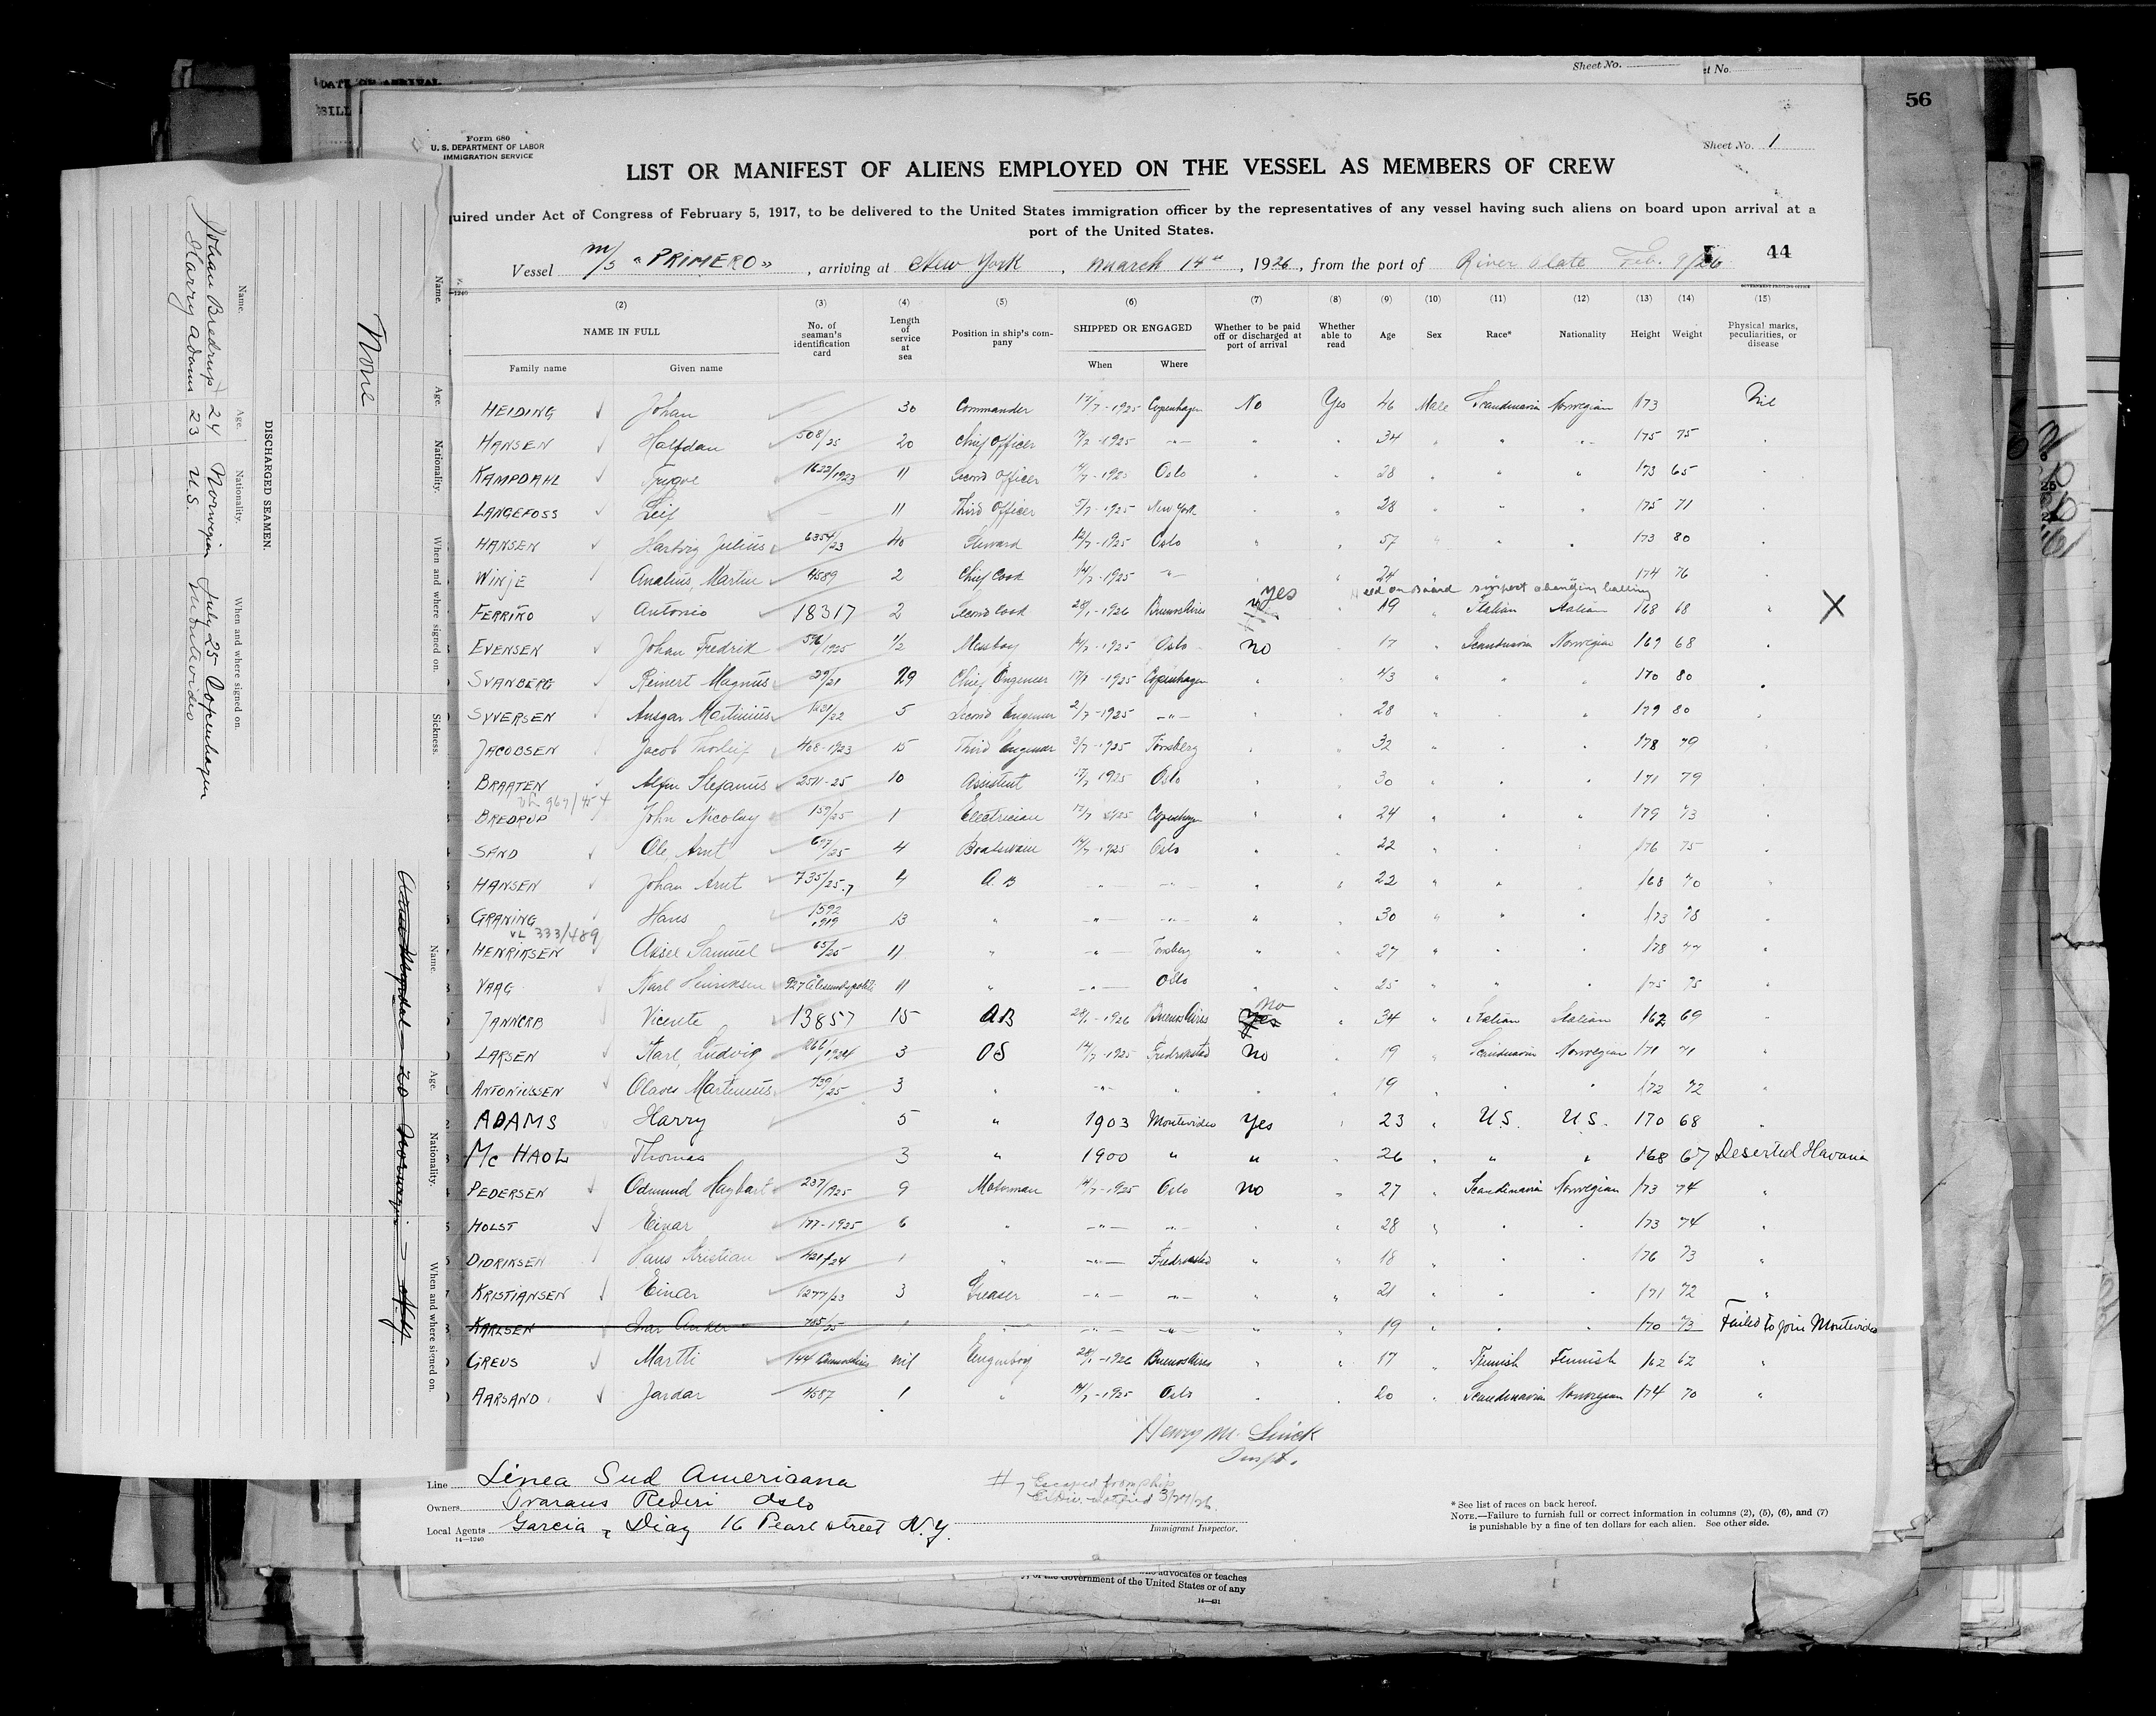 Sheet No.
t No.
DATE OF ARRIVAL
56
Form 680
U. S. DEPARTMENT OF LABOR
IMMIGRATION SERVICE
Sheet No. 1
LIST OR MANIFEST OF ALIENS EMPLOYED ON THE VESSEL AS MEMBERS OF CREW
uired under Act of Congress of February 5, 1917, to be delivered to the United States immigration officer by the representatives of any vessel having such aliens on board upon arrival at a
port of the United States.
44
Vessel m/s "PRIMERO", arriving at New York, March 14", 1926, from the port of River Plate Feb. 9/26
(2) (3) (4) (5) (6) (7) (8) (9) (10) (11) (12) (13) (14) (15)
NAME IN FULL
Family name Given name
No. of seaman's identification card
Length of service at sea
Position in ship's company
SHIPPED OR ENGAGED
When Where
Whether to be paid off or discharged at port of arrival
Whether able to read
Age
Sex
Race*
Nationality
Height
Weight
Physical marks, peculiarities, or disease
HEIDING Johan 30 Commander 17/7-1925 Copenhagen No Yes 46 Male Scandinavia Norwegian 173 Nil
HANSEN Halfdan 508/25 20 Chief Officer -1925 -"- " " 34 " " " 175 75
KAMPDAHL Trygve 1622/1923 11 Second Officer -1925 Oslo " 28 " " " 173 65
LANGEFOSS Leif 11 Third Officer 5/7-1925 New York " 28 " " " 175 71
HANSEN Hartvig Julius 6354/23 40 Steward -1925 Oslo " 57 " 173 80
WINJE Analius, Martin 4589 2 Chief Cook 14/7-1925 -"- 24 174 76
yes
FERRIÑO Antonio 18317 2 Second Cook 28/1-1926 Buenos Aires 19 " Italian Italian 168 68 " X
EVENSEN Johan Fredrik 596/1925 1/2 Messboy 14/7-1925 Oslo no 17 " Scandinavia Norwegian 169 68
SVANBERG Reinert Magnus 29/21 29 Chief Engineer -1925 Copenhagen " 43 " " " 170 80
SYVERSEN Ansgar Martinius 5 Second Engineer 2/7-1925 -"- 28 " " 179 80
JACOBSEN Jacob Thorleif 408-1923 15 Third Engineer 3/7-1925 Tönsberg 32 " 178 79
BRAATEN Stefanus 2511-25 10 Assistent 1925 Oslo 30 " 171 79
VL 967/454
BREDRUP John Nicolay 159/25 1 Electrician 1925 Copenhagen 24 " 179 73
SAND Ole, Arnt 697/25 4 Boatswain 14/7-1925 Oslo 22 " 176 75
HANSEN Johan Arnt 735/25.7 4 A.B -"- -"- " " 22 " 168 70
GRANING Hans 1592 1919 13 " -"- -"- " 30 " " 173 78
VL 333/489
HENRIKSEN Aksel Samuel 65/25 11 " -"- Tonsberg " 27 " 178 77
VAAG Karl Henriksen 927 Ålesundspoliti 11 " -"- Oslo " 25 " 175 75
no
JANNCRB Vicente 13857 15 AB 28/1-1926 Buenos Aires Yes " 34 " Italian Italian 162 69
LARSEN Karl Ludvig 1924 3 OS 14/7-1925 Fredrikstad no 19 Scandinavia Norwegian 171 71
ANTONIUSSEN Olaves Martinius 739/25 3 " -"- " 19 " 172 72
ADAMS Harry 5 " 1903 Montevideo Yes 23 " U.S. U.S. 170 68
Mc HAOL Thomas 3 " 1900 " " 26 " " " 168 67 Deserted Havana
PEDERSEN Odmund Haybart 237/1925 9 Motorman 14/7-1925 Oslo no 27 " Scandinavia Norwegian 173 74 "
HOLST Einar 177-1925 6 " -"- -"- 28 " 173 74
DIDRIKSEN Hans Kristian 421/24 1 " -"- Fredrikstad " 18 " 176 73
KRISTIANSEN Einar 1277/23 3 Greaser -"- -"- " " 21 " 171 72
KARLSEN 765/25 1 " -"- -"- " " 19 " 170 73 Failed to join Montevideo
GREUS Martti 144 nil Engineboy 28/1-1926 Buenos Aires " 17 " Finnish Finnish 162 62 "
AARSAND Jardar 4587 1 " 14/7-1925 Oslo 20 " Scandinavia Norwegian 174 70 "
Henry M.
Inspt.
# 7 Escaped from ship
notified 3/27/26
Line Linea Sud Americana
Owners Ivarans Rederi Oslo
Local Agents Garcia & Diaz 16 Pearl street N.Y.
14—1240
Immigrant Inspector.
* See list of races on back hereof.
NOTE.—Failure to furnish full or correct information in columns (2), (5), (6), and (7)
is punishable by a fine of ten dollars for each alien. See other side.
advocates or teaches
of the Government of the United States or of any
DISCHARGED SEAMEN.
Name. Age. Nationality. When and where signed on.
Johan Bredrup 24 Norwegian July 25 Copenhagen
Harry Adams 23 U.S. Montevideo
Name. Age. Nationality. When and where signed on. Sickness.
None
Name. Age. Nationality. When and where signed on.
20 Norwegian